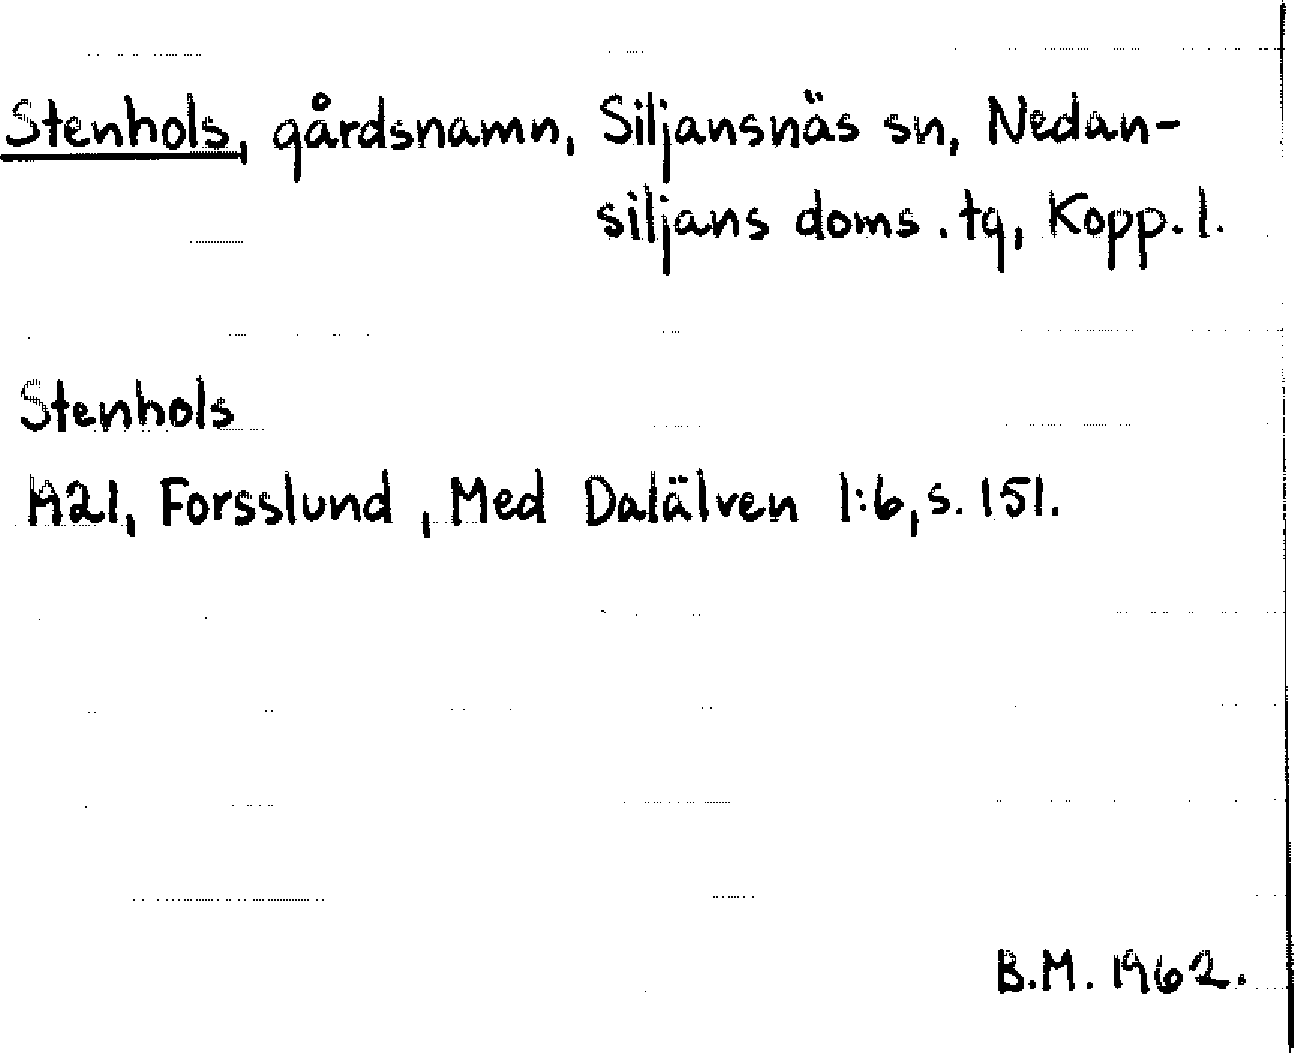 Stenhols, gårdsnamn, Siljansnäs sn, Nedan-
siljans doms. tg, Kopp. l.
Stenhols
1921, Forsslund, Med Dalälven 1:6, s. 151.
B.M. 1962.